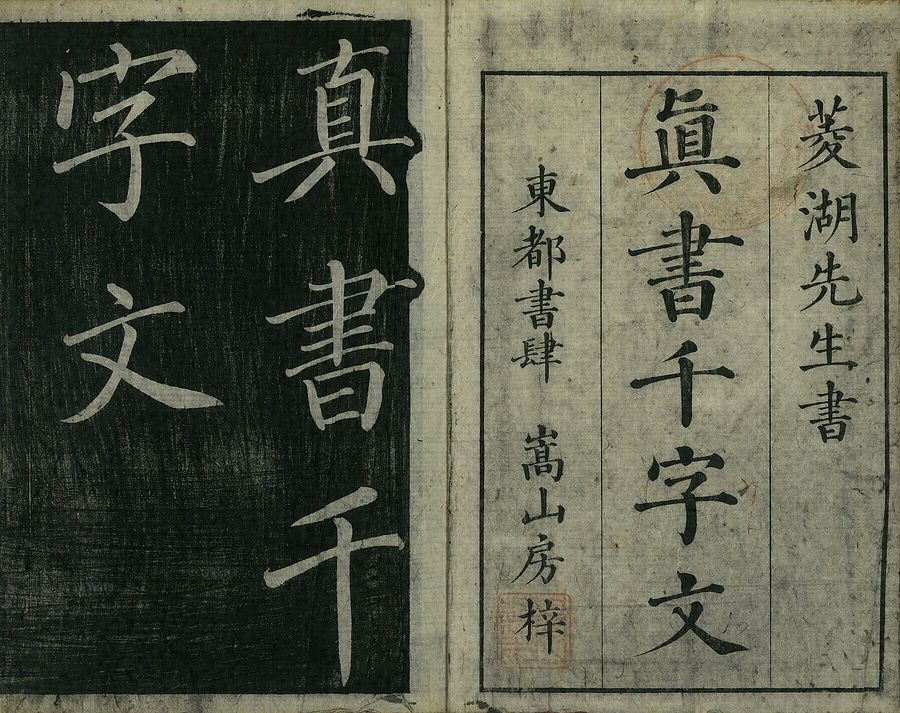 菱湖先生書
眞書千字文
東都書肆 嵩山房梓
真書千
字文